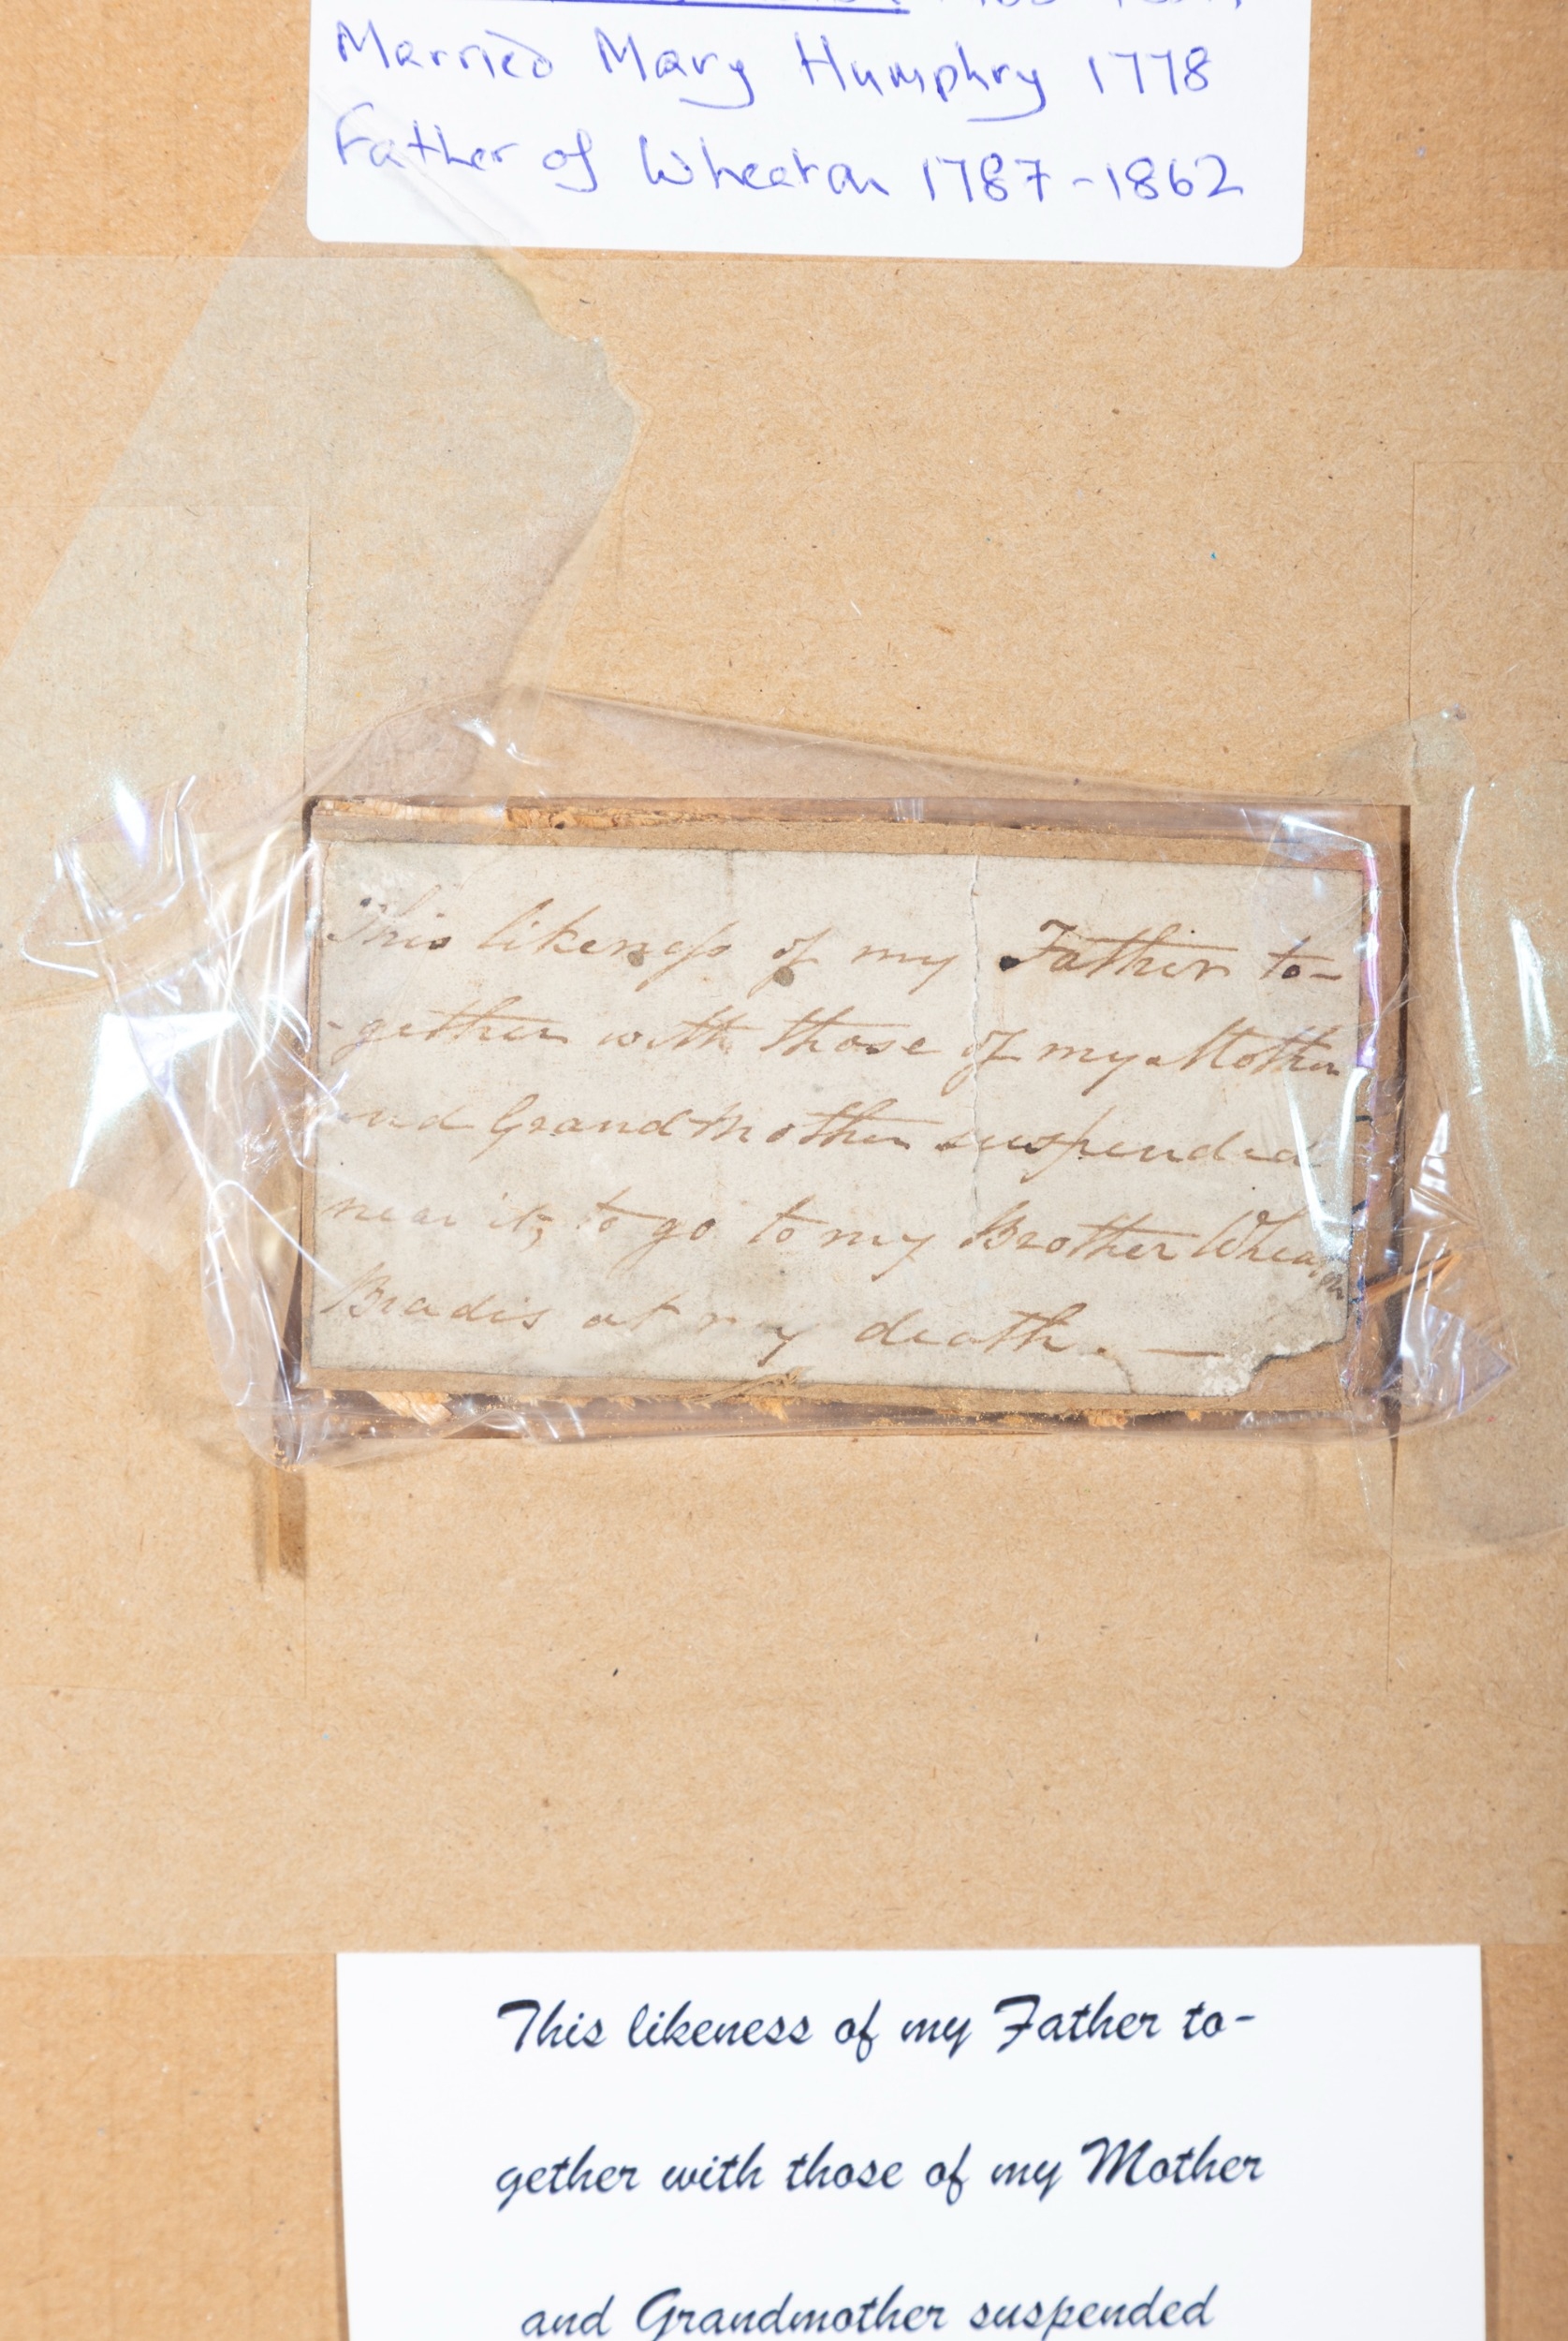 Married Mary Humphry 1778
Father of Wheaton 1787-1862
This likeneſs of my Father to-
-gether with those of my Mother
and GrandMother suspended
near it, to go to my Brother Wheaton
Bradis at my death. —
This likeness of my Father to-
gether with those of my Mother
and Grandmother suspended